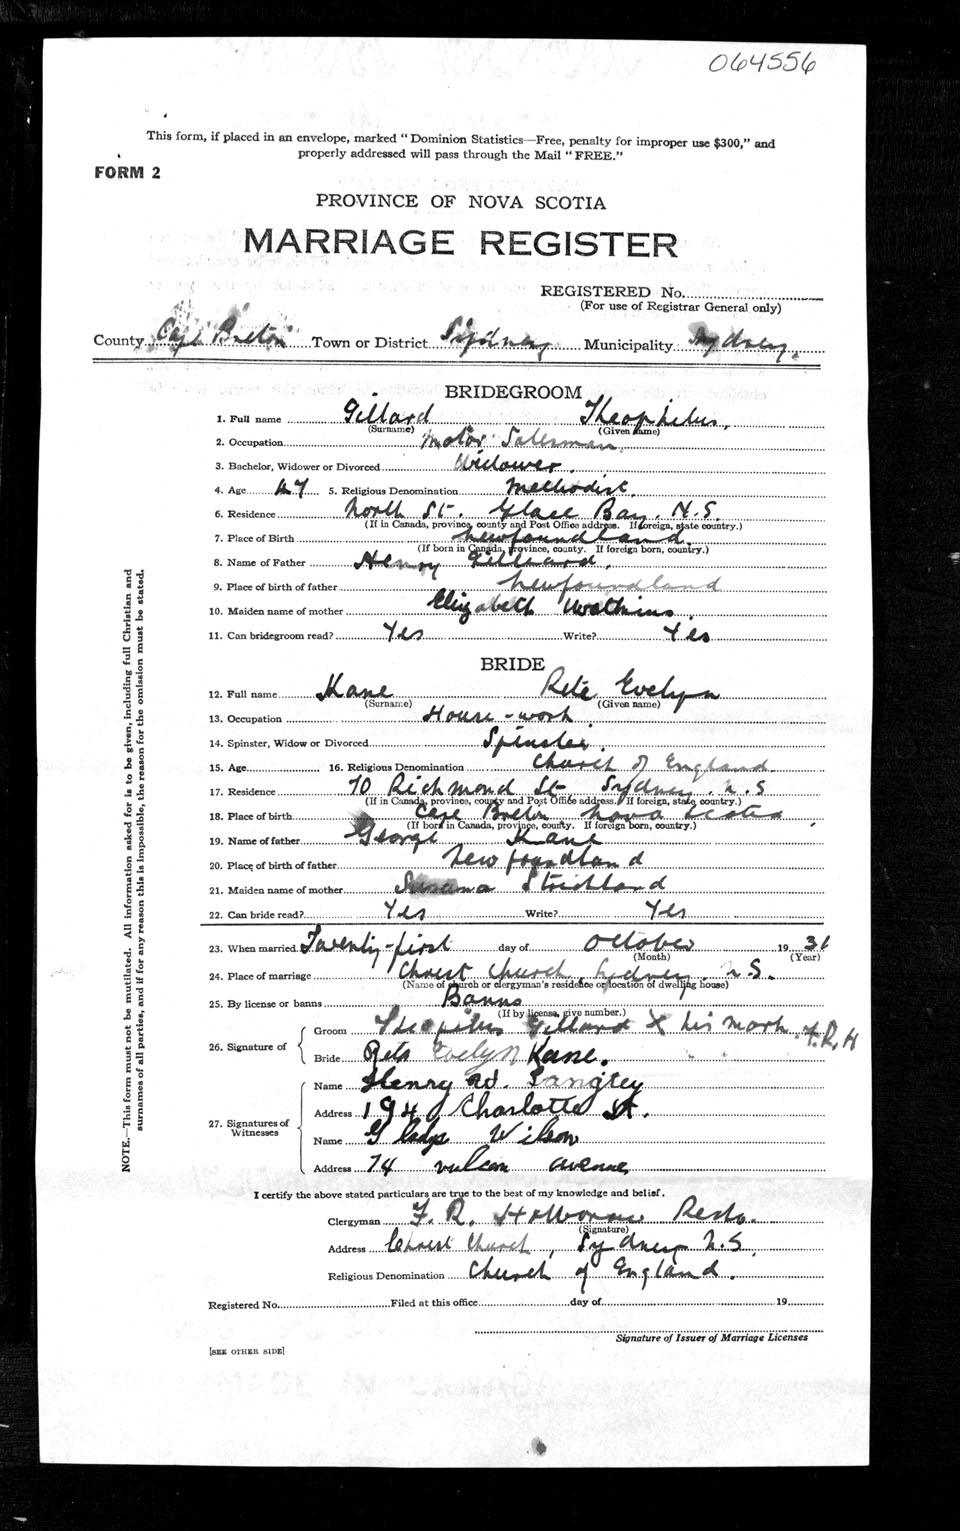 064556
This form, if placed in an envelope, marked “Dominion Statistics—Free, penalty for improper use $300,” and
properly addressed will pass through the Mail “FREE.”
FORM 2
PROVINCE OF NOVA SCOTIA
MARRIAGE REGISTER
REGISTERED No.
(For use of Registrar General only)
County Cape Breton Town or District Sydney Municipality Sydney.
BRIDEGROOM
1. Full name Gillard Theophelus,
(Surname) (Given name)
2. Occupation Motor Salesman
3. Bachelor, Widower or Divorced Widower.
4. Age 47 5. Religious Denomination Methodist.
6. Residence North St. Glace Bay. N.S.
(If in Canada, province, county and Post Office address. If foreign, state country.)
7. Place of Birth Newfoundland.
(If born in Canada, province, county. If foreign born, country.)
8. Name of Father Henry Gillard.
9. Place of birth of father Newfoundland
10. Maiden name of mother Elizabeth Watkins.
11. Can bridegroom read? Yes Write? Yes
BRIDE
12. Full name Kane Reta Evelyn
(Surname) (Given name)
13. Occupation House-work.
14. Spinster, Widow or Divorced Spinster.
15. Age 16. Religious Denomination Church of England.
17. Residence 70 Richmond St Sydney. N.S
(If in Canada, province, county and Post Office address. If foreign, state country.)
18. Place of birth Cape Breton Nova Scotia,
(If born in Canada, province, county. If foreign born, country.)
19. Name of father George Kane
20. Place of birth of father Newfoundland
21. Maiden name of mother Strickland
22. Can bride read? Yes Write? Yes
23. When married Twenty-first day of October 1931
(Month) (Year)
24. Place of marriage Christ Church, Sydney. N.S.
(Name of church or clergyman's residence or location of dwelling house)
25. By license or banns Banns
(If by license, give number.)
26. Signature of Groom Gillard X his mark. F.R.H
Bride Reta Evelyn Kane.
27. Signatures of Witnesses Name Henry W. Langley
Address 194 Charlotte St.
Name Gladys Wilson
Address 74 vulcan avenue
I certify the above stated particulars are true to the best of my knowledge and belief.
Clergyman F. R. Holborne
(Signature)
Address Christ Church, Sydney N.S.
Religious Denomination Church of England.
Registered No. Filed at this office day of 19
Signature of Issuer of Marriage Licenses
[SEE OTHER SIDE]
NOTE.—This form must not be mutilated. All information asked for is to be given, including full Christian and
surnames of all parties, and if for any reason this is impossible, the reason for the omission must be stated.